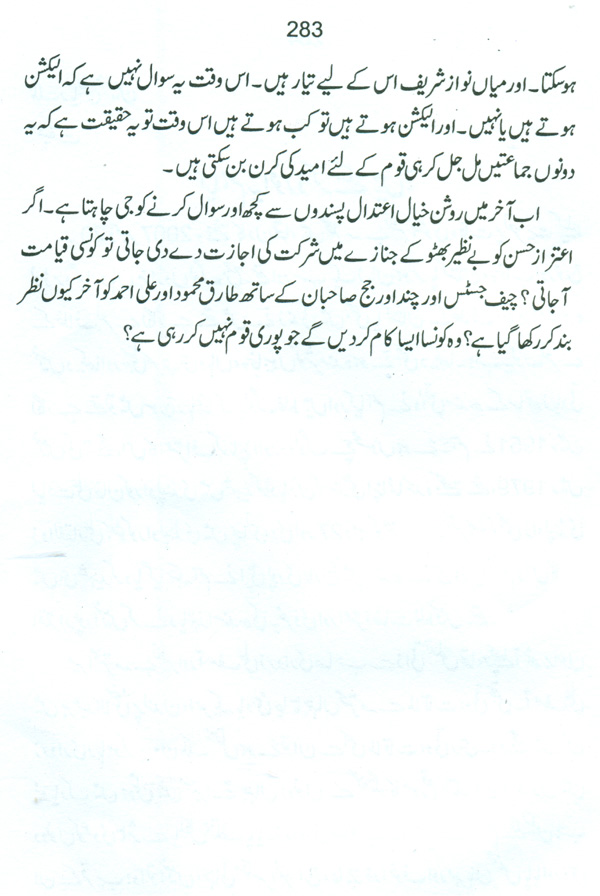 283
ہوسکتا۔ اور میاں نواز شریف اس کے لیے تیار ہیں۔ اس وقت یہ سوال نہیں ہے کہ الیکشن
ہوتے ہیں یا نہیں۔ اور الیکشن ہوتے ہیں تو کب ہوتے ہیں اس وقت تو یہ حقیقت ہے کہ یہ
دونوں جماعتیں مل جل کر ہی قوم کے لئے امید کی کرن بن سکتی ہیں۔
اب آخر میں روشن خیال اعتدال پسندوں سے کچھ اور سوال کرنے کو جی چاہتا ہے۔ اگر
اعتزاز حسن کو بے نظیر بھٹو کے جنازے میں شرکت کی اجازت دے دی جاتی تو کونسی قیامت
آ جاتی؟ چیف جسٹس اور چند اور جج صاحبان کے ساتھ طارق محمود اور علی احمد کو آخر کیوں نظر
بند کر رکھا گیا ہے؟ وہ کونسا ایسا کام کر دیں گے جو پوری قوم نہیں کر رہی ہے؟